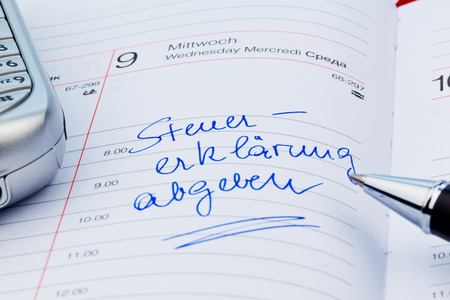 9 Mittwoch
Wednesday Mercredi Среда
67-298
68-297
Steuer-
erklärung
abgeben
8.00
9.00
10.00
11.00
12.00
10